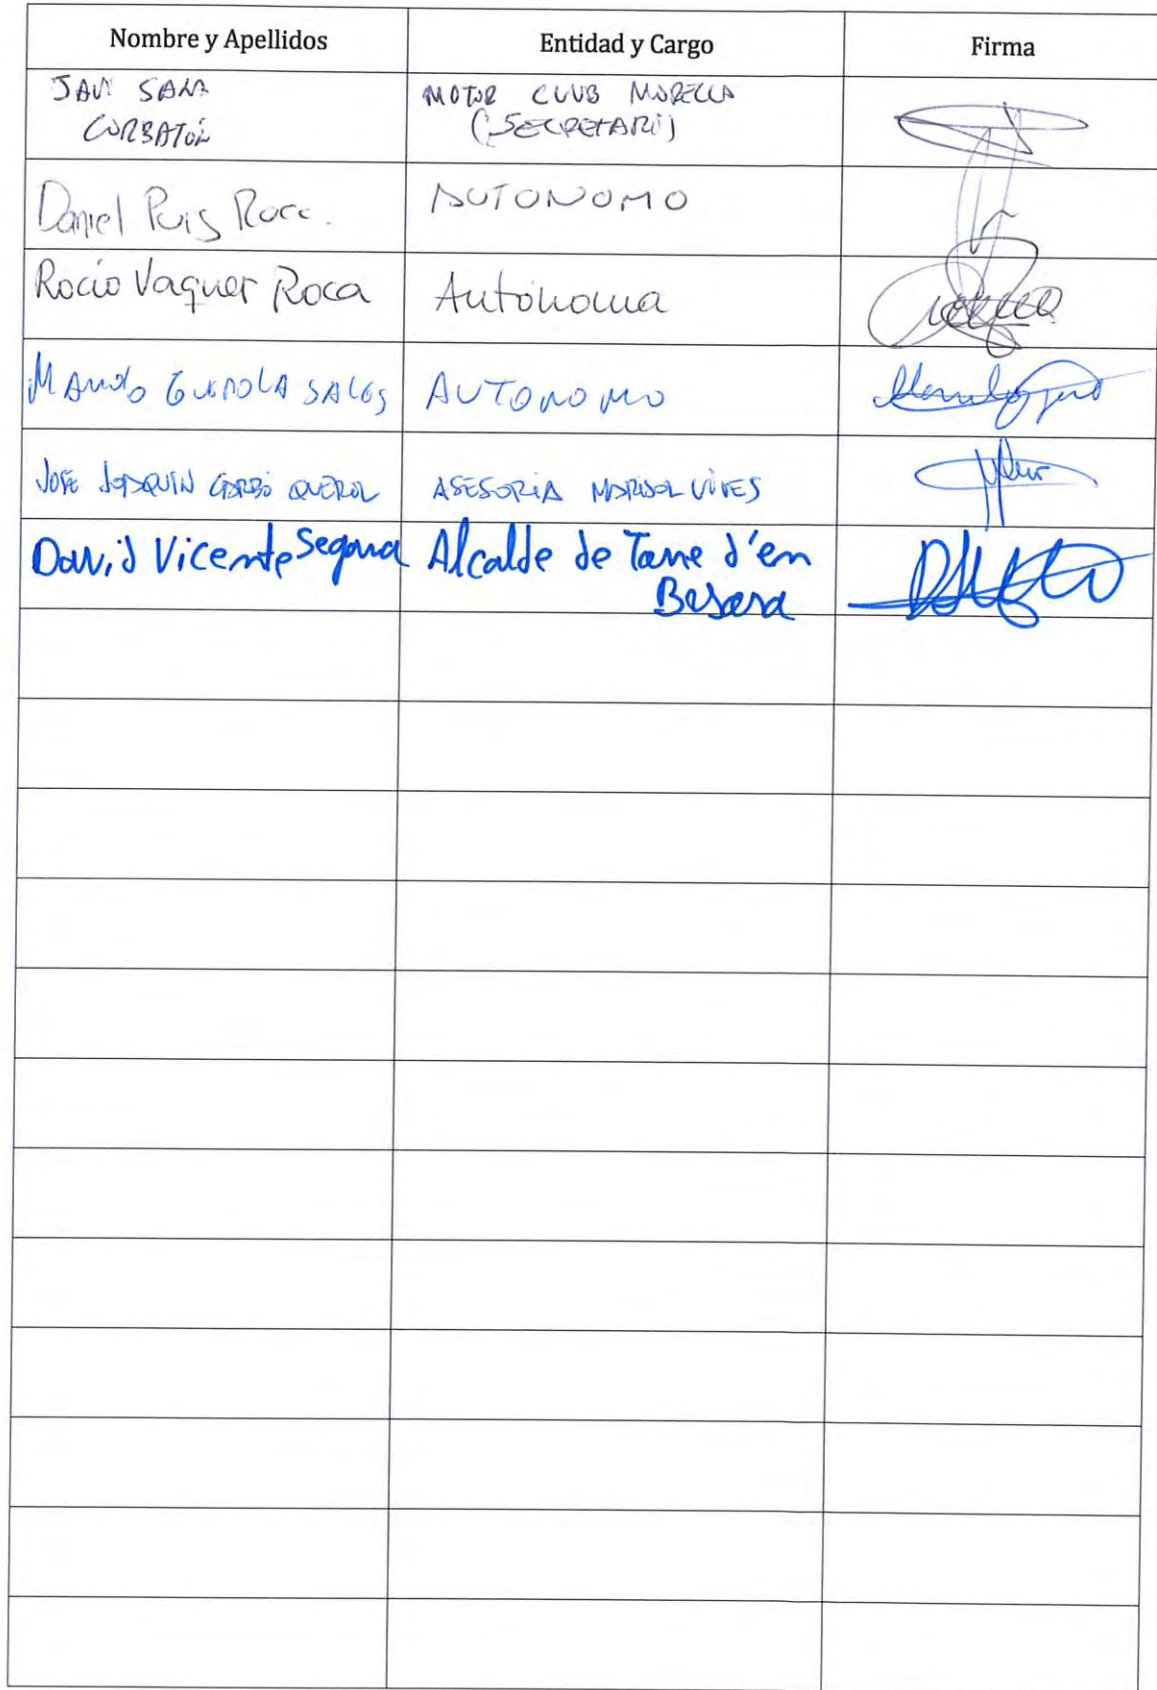 Nombre y Apellidos Entidad y Cargo Firma
JAVI SANZ MOTOR CLUB MORELLA
CORBATÓN (SECRETARI)
Daniel Puig Roca. AUTONOMO
Rocio Vaquer Roca Autónoma
MANOLO GUARDIOLA SALES AUTONOMO
JOSE JOAQUIN CARBÓ QUEROL ASESORIA MARISOL VIVES
David Vicente Segarra Alcalde de Torre d'en
Besora